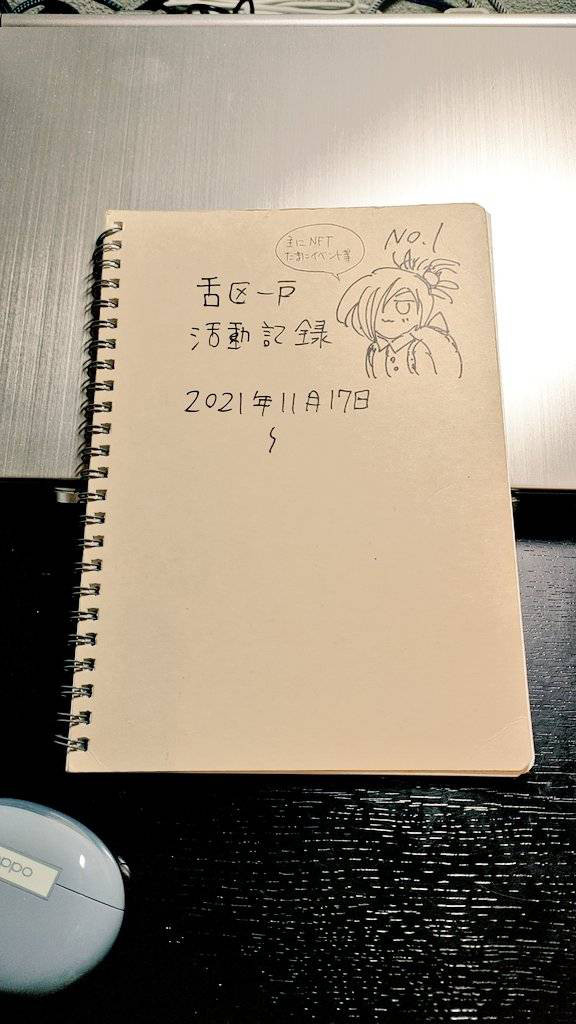 NO.1
主に NFT
たまにイベント等
舌区一戸
活動記録
2021年11月17日
〜
oppo